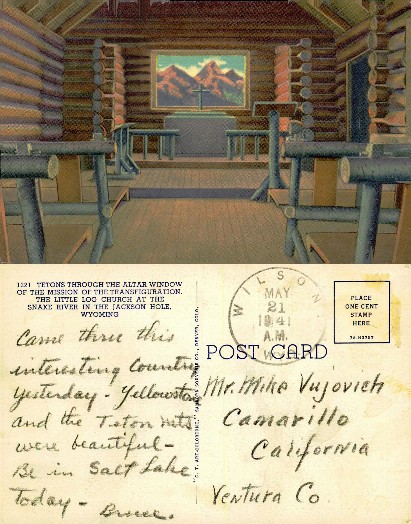 1221 TETONS THROUGH THE ALTAR WINDOW
OF THE MISSION OF THE TRANSFIGURATION.
THE LITTLE LOG CHURCH AT THE
SNAKE RIVER IN THE JACKSON HOLE,
WYOMING
Came thru this
interesting Country
Yesterday - Yellowstone
and the Teton Mts
were beautiful -
Be in Salt Lake
today -
Bruce.
WILSON
MAY
21
1941
A.M.
PLACE
ONE CENT
STAMP
HERE
POST CARD
Mr. Mike Vujovich
Camarillo
California
Ventura Co.